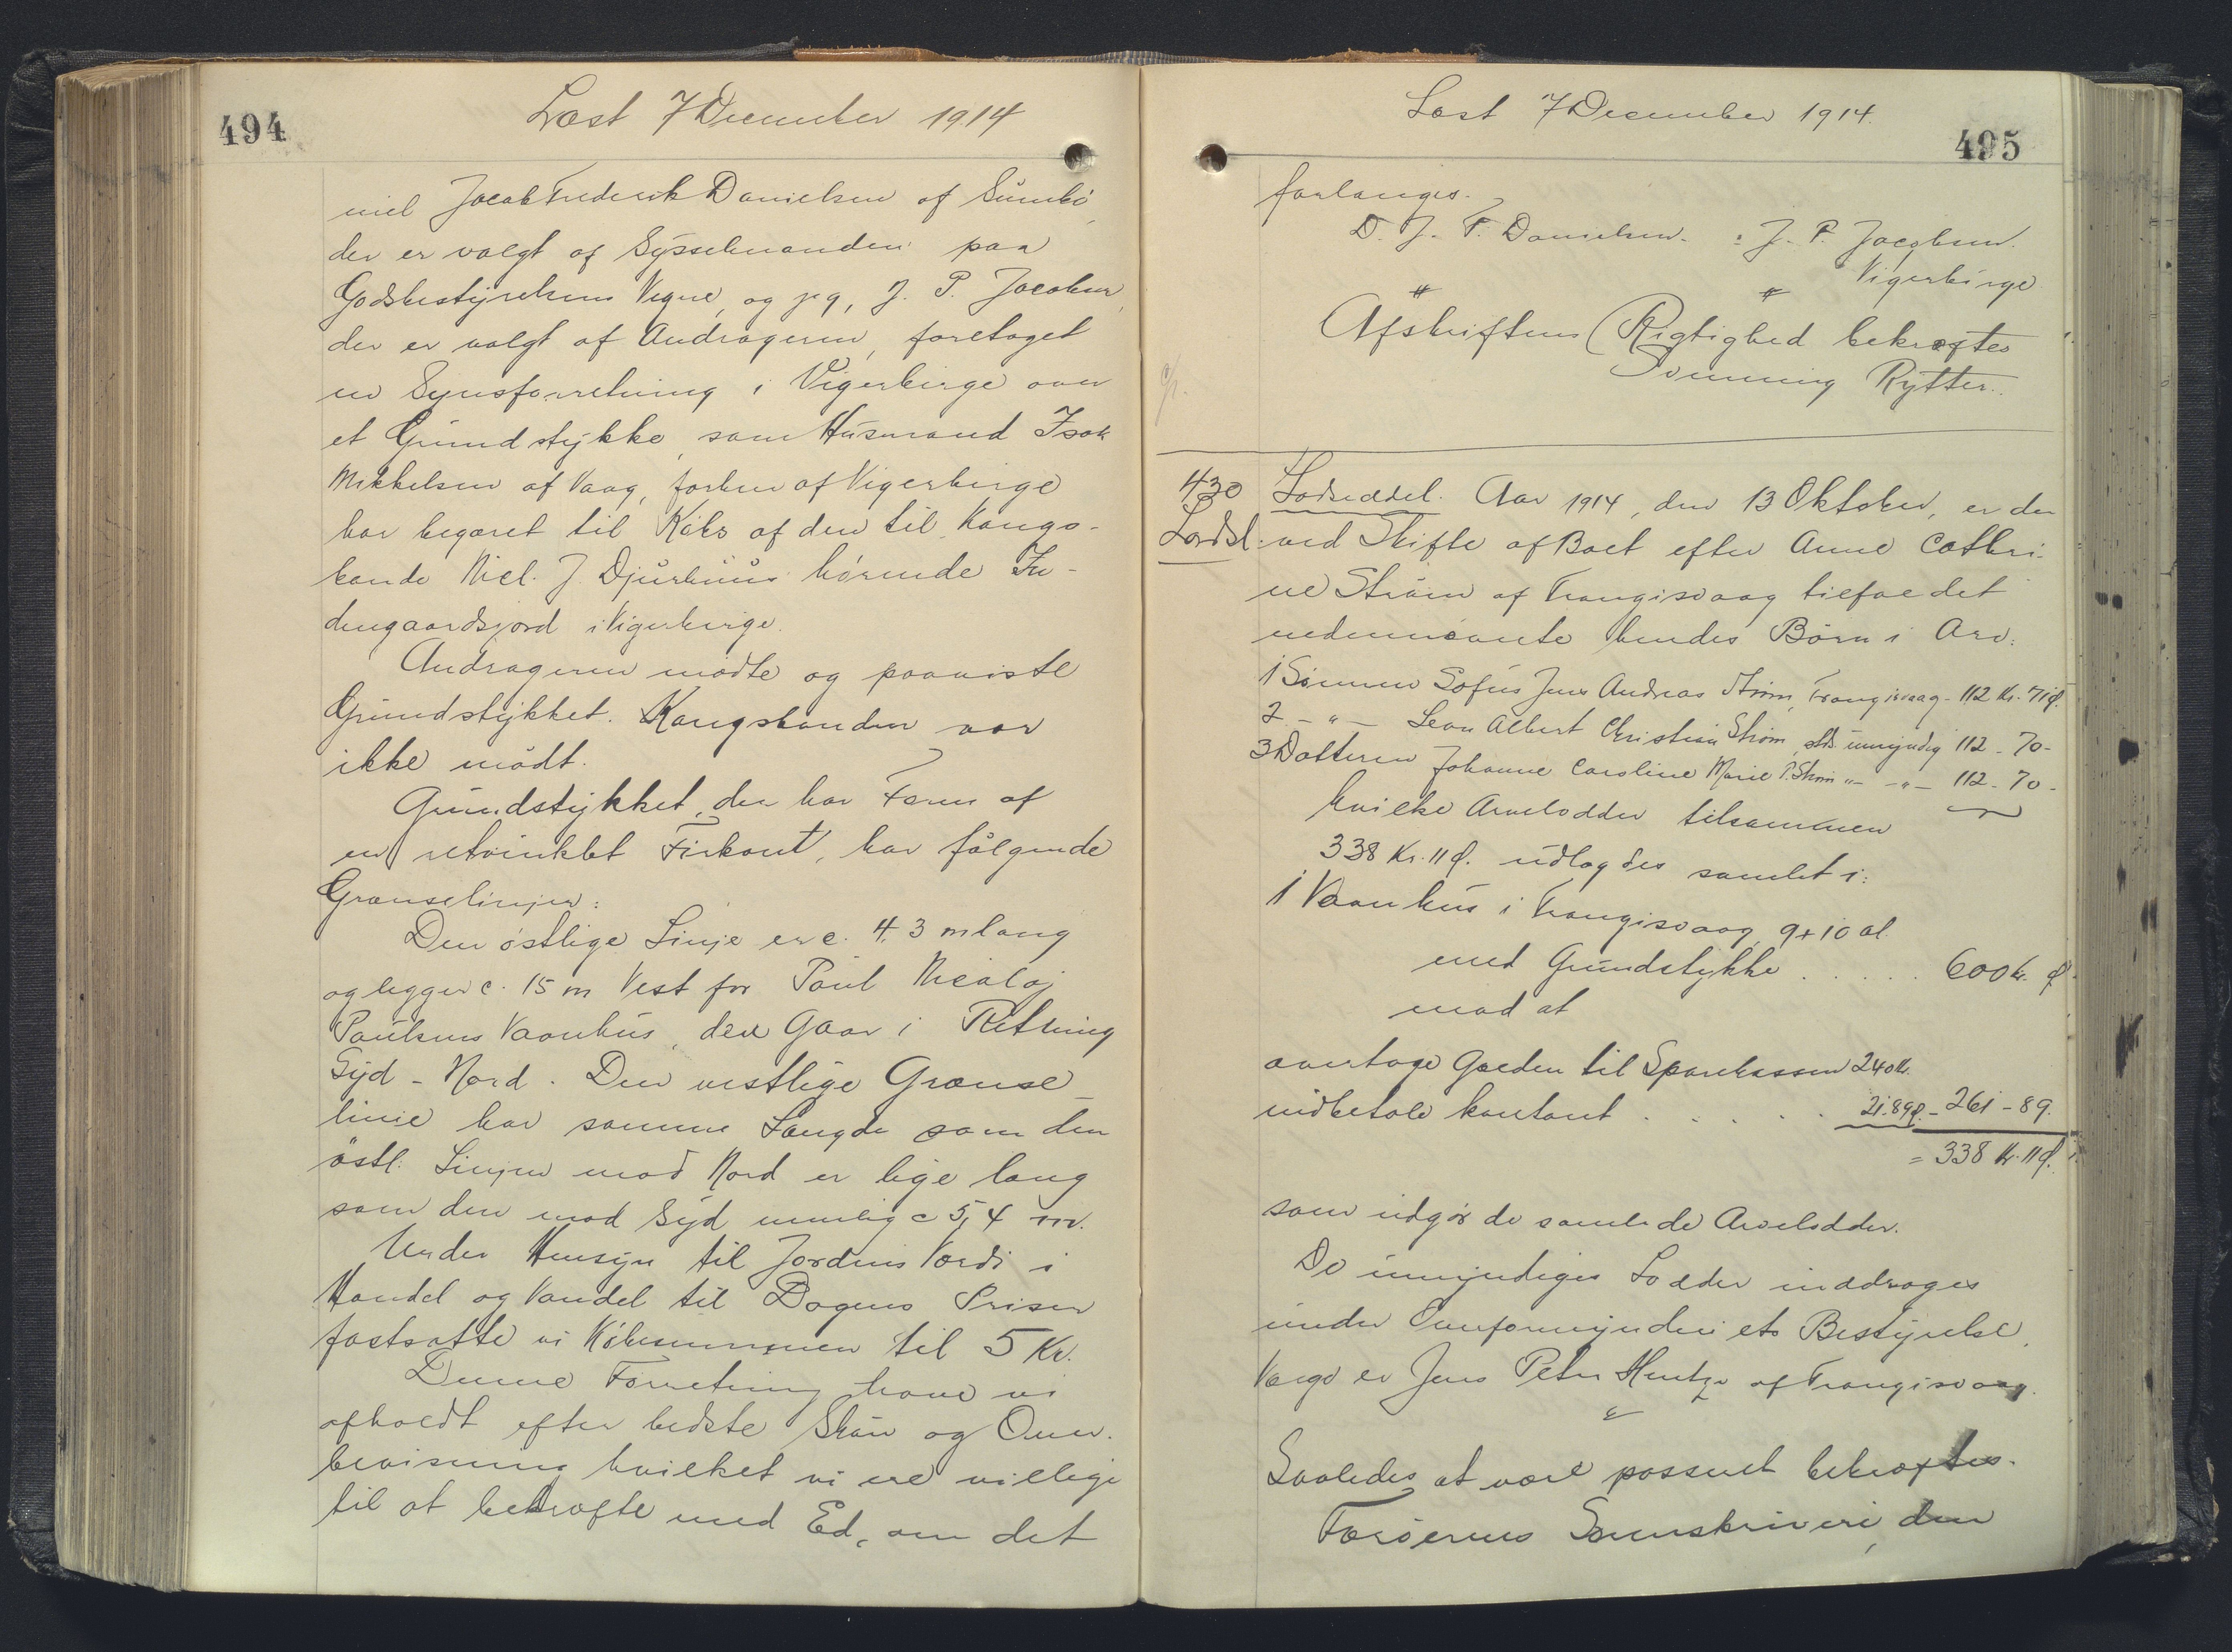 494
Læst 7 December 1914
niel Jacob Frederik Danielsen af Sumbø,
der er valgt af Sysselmanden paa
Godsbestyrelsens Vegne, og jeg, J. P. Jacobsen,
der er valgt af Andrageren, foretaget
en Synsforretning i Vigerbirge over
et Grundstykke, som Husmand Isak
Mikkelsen af Vaag, forhen af Vigerbirge
har begæret til Købs af den til Kongs-
bonde Nicl. J. Djurhuus hørende In-
dengaardsjord i Vigerbirge.
Andrageren mødte og paaviste
Grundstykket. Kongsbonden var
ikke mødt.
Grundstykket, der har Form af
en retvinklet Firkant, har følgende
Grænselinjer:
Den østlige Linje er c. 4,3 m lang
og ligger c. 15 m Vest for Poul Nicolaj
Poulsens Vaanhus, den gaar i Retning
Syd - Nord. Den vestlige Grænse-
linie har samme Længde som den
østl. Linjen mod Nord er lige lang
som den mod Syd nemlig c 5,4 m.
Under Hensyn til Jordens Værdi i
Handel og Vandel til Dagens Priser
fastsatte vi Købesummen til 5 Kr.
Denne Forretning have vi
afholdt efter bedste Skøn og Over-
bevisning hvilket vi ere villige
til at bekræfte med Ed, om det
Læst 7 December 1914.
495
forlanges.
D. J. F. Danielsen. J. P. Jacobsen.
" " Vigerbirge
Afskriftens Rigtighed bekræftes
Svenning Rytter.
430 Lodseddel. Aar 1914, den 13 Oktober, er der
Lodsl. ved Skifte af Boet efter Anne Cathri-
ne Strøm af Trangisvaag tilfaldet
nedennævnte hendes Børn i Arv:
1 Sønnen Sofus Jens Andreas Strøm, Trangisvaag - 112 Kr. 71 Ø.
2 - " - Leon Albert Christian Strøm, sts. umyndig 112 - 70 -
3 Datteren Johanne Caroline Marie P. Strøm " - - " - 112 - 70 -
hvilke Arvelodder tilsammen
338 Kr. 11 Ø. udlagdes samlet i:
1 Vaanhus i Trangisvaag, 9 + 10 al.
med Grundstykke . . . . . 600 Kr. Ø.
mod at
overtage Gælden til Sparekassen 240 Kr.
indbetale kontant . . . . . 21.89 Ø. - 261 - 89.
= 338 Kr. 11 Ø.
som udgør de samlede Arvelodder.
De umyndiges Lodder inddrages
under Overformynderiets Bestyrelse,
Værge er Jens Peter Hentze af Trangisvaag.
Saaledes at være passeret bekræftes.
Færøernes Sorenskriveri, den